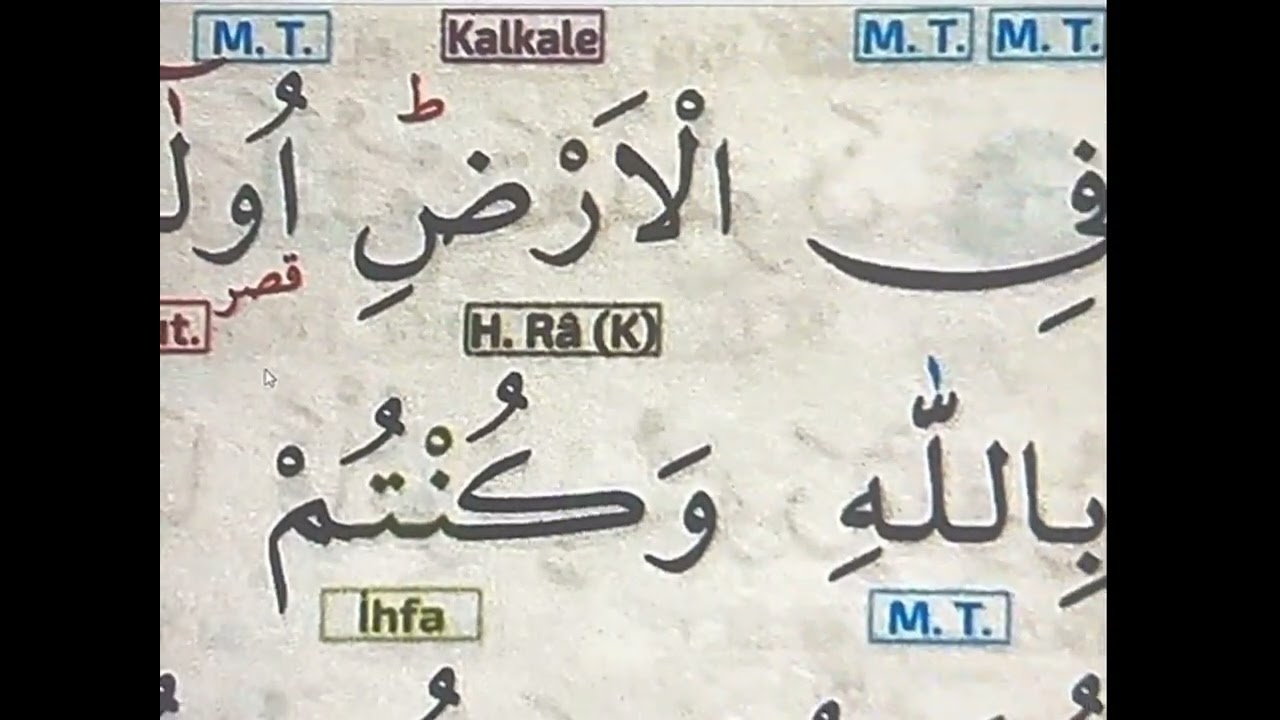 M. T. Kalkale M. T. M. T.
فِي الْاَرْضِۜ اُول
قصر
H. Râ (K)
بِاللّٰهِ وَكُنْتُمْ
İhfa M. T.